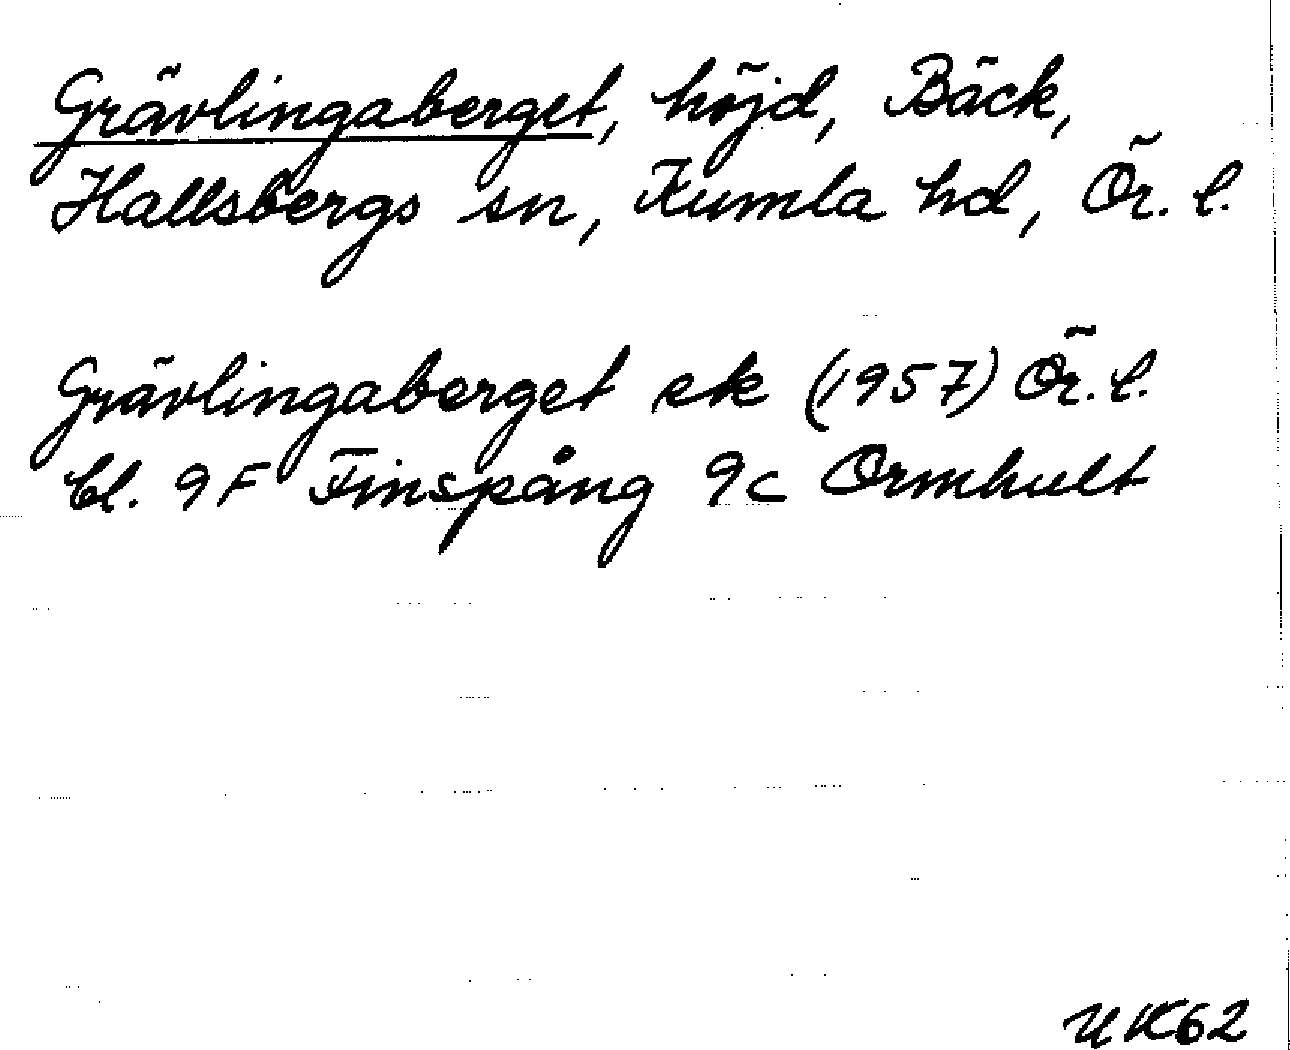 Grävlingaberget, höjd, Bäck,
Hallsbergs sn, Kumla hd, Ör. l.
Grävlingaberget ek (1957) Ör. l.
bl. 9F Finspång 9c Ormhult
UK62